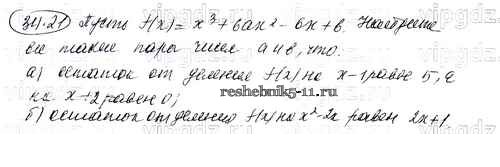 34.21 Пусть f(x) = x³ + 6ax² - 6x + b. Найдите
все такие пары чисел a и b, что:
а) остаток от деления f(x) на x-1 равен 5, а
на x+2 равен 0;
reshebnik5-11.ru
б) остаток от деления f(x) на x²-2x равен 2x+1